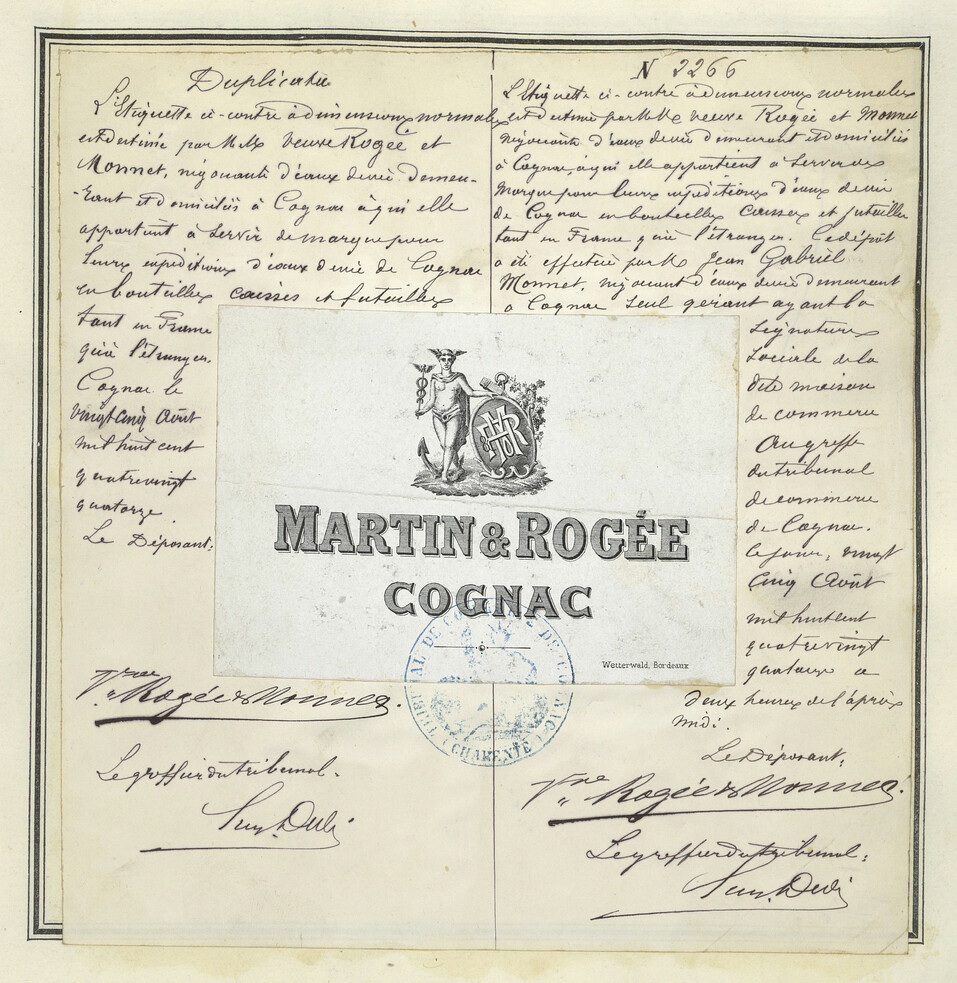 Duplicata
L'Etiquette ci-contre à dimensions normales
est destinée par MM veuve Rogée et
Monnet, négociants d'eaux de vie demeu-
-rant et domiciliés à Cognac à qui elle
appartient à servir de marque pour
leurs expéditions d'eaux de vie de Cognac
en bouteilles caisses et futailles
tant en France
qu'à l'étranger.
Cognac le
vingt cinq Août
mil huit cent
quatrevingt
quatorze
Le Déposant:
Vve Rogée & Monnet.
Le greffier du tribunal.
N 2266
L'Etiquette ci-contre à dimensions normales
est destinée par MM veuve Rogée et Monnet
négociants d'eaux de vie demeurant et domiciliés
à Cognac, à qui elle appartient à servir de
marque pour leurs expéditions d'eaux de vie
de Cognac en bouteilles caisses et futailles
tant en France qu'à l'étranger. Ce dépôt
a été effectué par M Jean Gabriel
Monnet, négociant d'eaux de vie demeurant
à Cognac seul gérant ayant la
signature
sociale de la
dite maison
de commerce
Au greffe
du tribunal
de commerce
de Cognac.
Ce jour, vingt
Cinq Août
mil huit cent
quatrevingt
quatorze à
deux heures de l'après
midi.
Le Déposant:
Vve Rogée & Monnet.
Le greffier du tribunal:
HMR
MARTIN & ROGÉE
COGNAC
Wetterwald, Bordeaux
TRIBUNAL DE COMMERCE DE COGNAC
(CHARENTE)